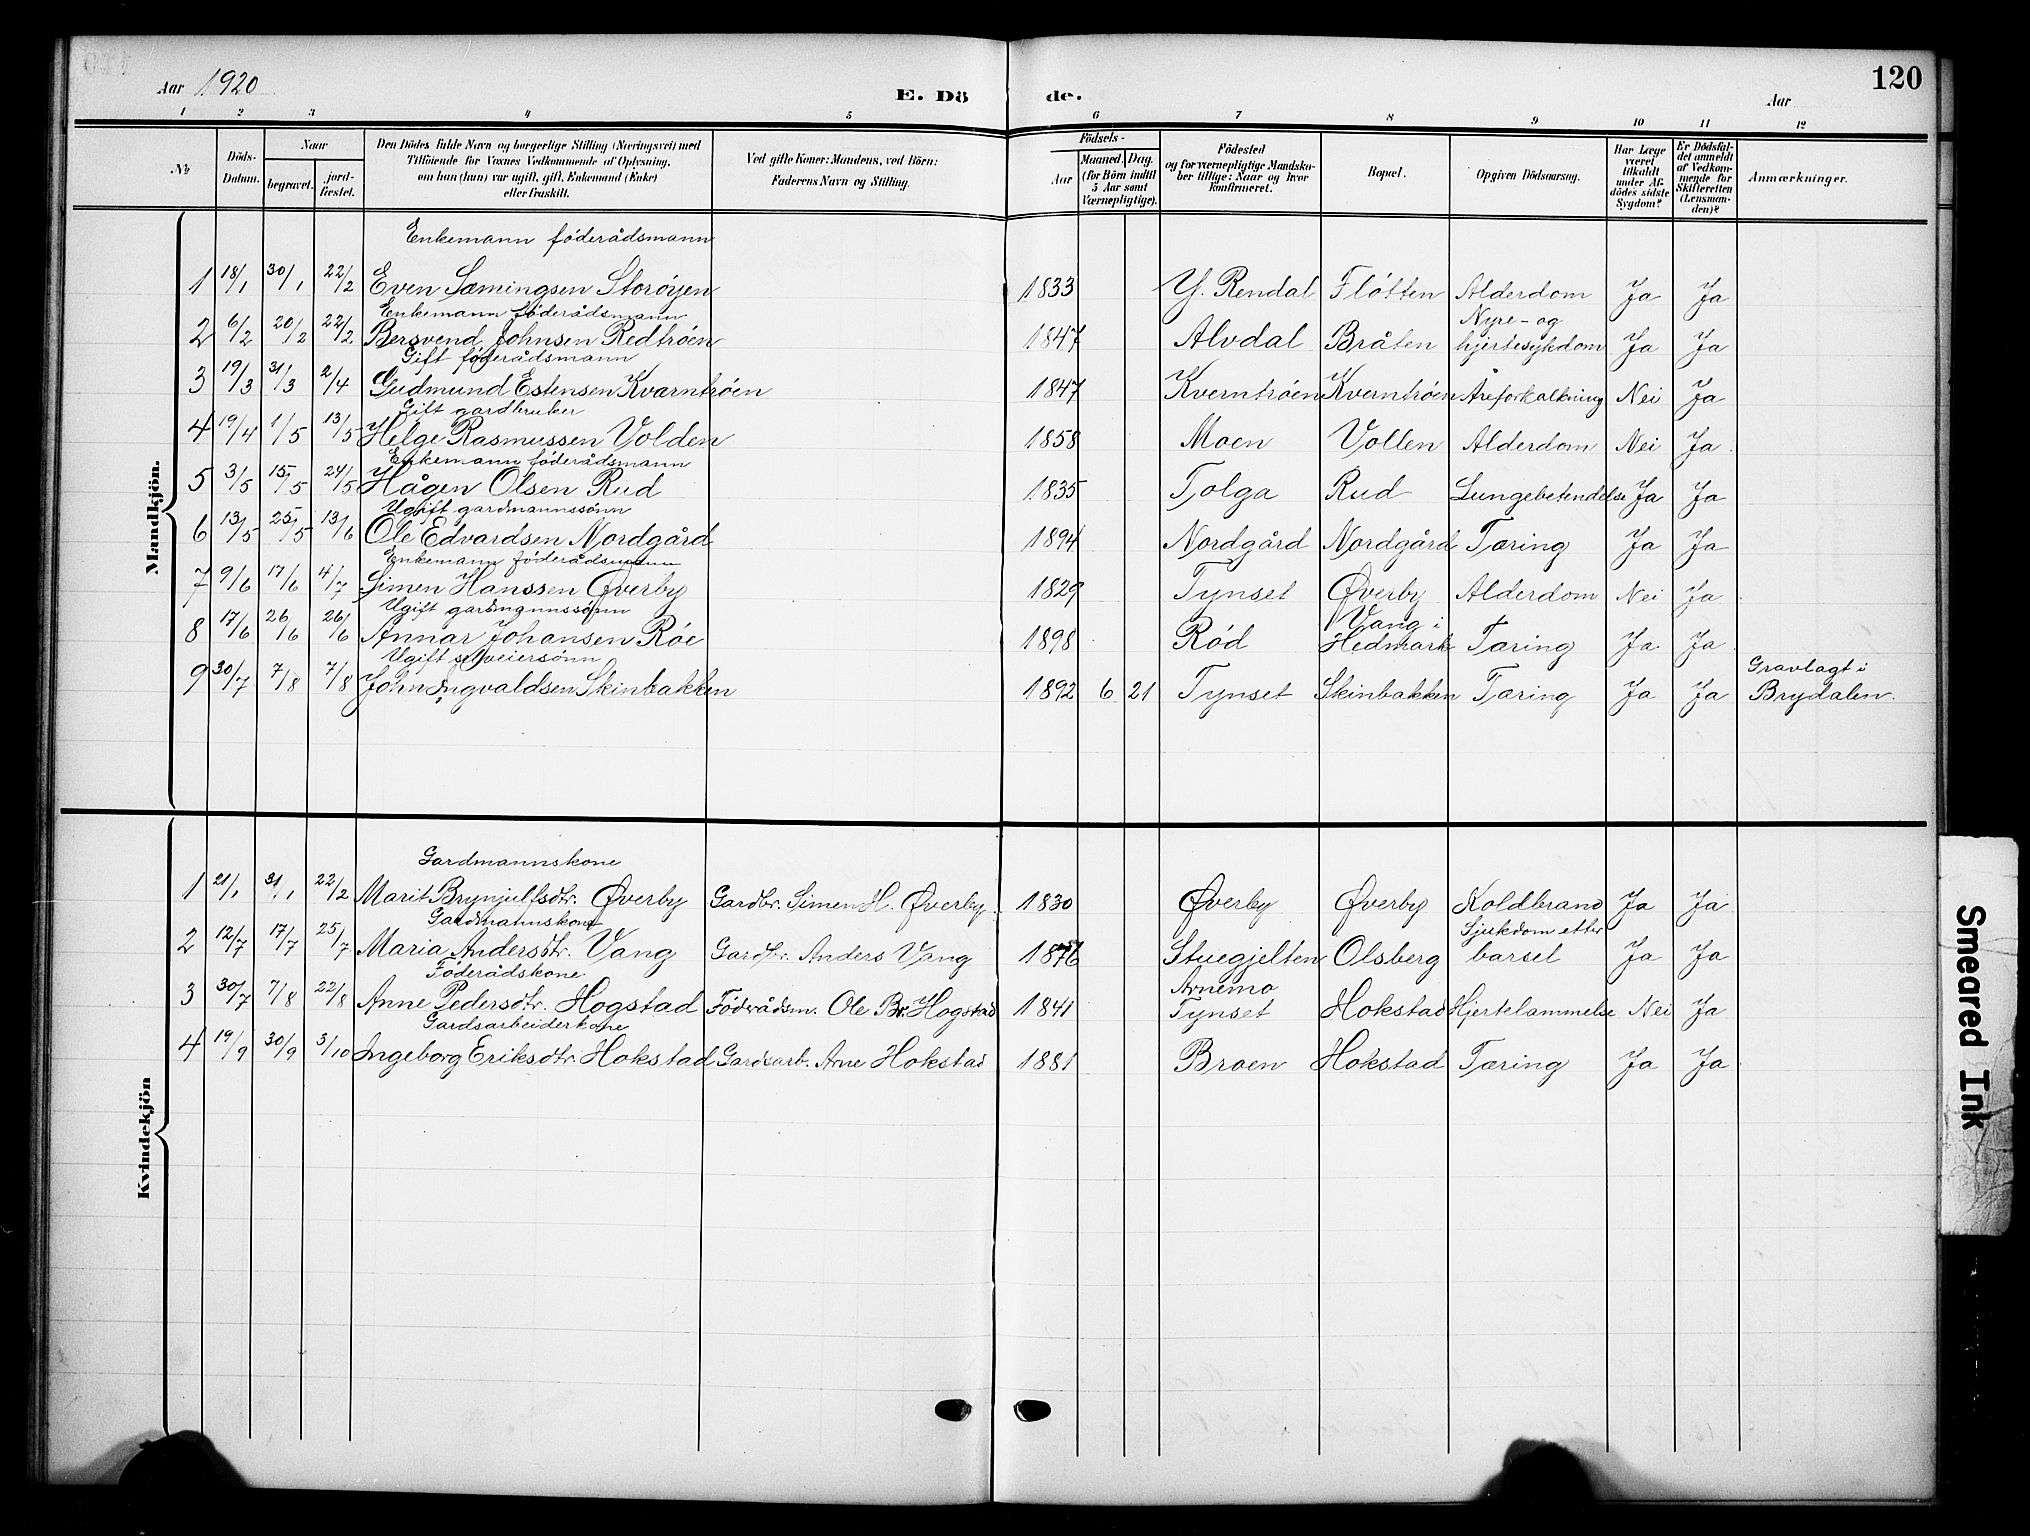 Aar 1920 E. Döde. Aar 120
1 2 3 4 5 6 7 8 9 10 11 12
№ Döds-Datum. Naar begravet. jordfæstet. Den Dödes fulde Navn og borgerlige Stilling (Næringsvei) med Tilföiende for Voxnes Vedkommende af Oplysning, om han (hun) var ugift, gift, Enkemand (Enke) eller fraskilt. Ved gifte Koner: Mandens, ved Börn: Faderens Navn og Stilling. Födsels- Aar Maaned. Dag. (for Börn indtil 5 Aar samt Værnepligtige). Födested og for værnepligtige Mandskaber tillige: Naar og hvor konfirmeret. Bopæl. Opgiven Dödsaarsag. Har Læge været tilkaldt under Afdödes sidste Sygdom? Er Dödsfaldet anmeldt af Vedkommende for Skifteretten (Lensmanden)? Anmærkninger.
Mandkjön.
Enkemann föderådsmann
1 18/1 30/1 22/2 Even Sæmingsen Storøyen 1833 Y. Rendal Fløtten Alderdom Ja Ja
Enkemann föderådsmann Nyre- og
2 6/2 20/2 22/2 Bersvend Johnsen Redtrøen 1847 Alvdal Bråten hjertesykdom Ja Ja
Gift föderådsmann
3 19/3 31/3 2/4 Gudmund Estensen Kvarntrøen 1847 Kverntrøen Kverntrøen Åreforkalkning Nei Ja
Gift gardbruker
4 19/4 1/5 13/5 Helge Rasmussen Volden 1858 Moen Vollen Alderdom Nei Ja
Enkemann föderådsmann
5 3/5 15/5 24/5 Hågen Olsen Rud 1835 Tolga Rud Lungebetendelse Ja Ja
Ugift gardmannssønn
6 13/5 25/5 13/6 Ole Edvardsen Nordgård 1894 Nordgård Nordgård Tæring Ja Ja
Enkemann föderådsmann
7 9/6 17/6 4/7 Simen Hanssen Øverby 1829 Tynset Øverby Alderdom Nei Ja
Ugift gardmannssønn Vang i
8 17/6 26/6 26/6 Annar Johansen Røe 1898 Rød Hedmark Tæring Ja Ja
Ugift selveiersønn Gravlagt i
9 30/7 7/8 7/8 John Ingvaldsen Skinbakken 1892 6 21 Tynset Skinbakken Tæring Ja Ja Brydalen.
Kvindekjön
Gardmannskone
1 21/1 31/1 22/2 Marit Brynjulfsdtr. Øverby Gardbr. Simen H. Øverby. 1830 Øverby Øverby Koldbrand Ja Ja
Gardmannskone Sjukdom etter
2 12/7 17/7 25/7 Maria Andersdtr. Vang Gardbr. Anders Vang 1876 Stuegjelten Olsberg barsel Ja Ja
Föderådskone Arnemo
3 30/7 7/8 22/8 Anne Pedersdtr. Hogstad Födrådsm. Ole Br. Hogstad 1841 Tynset Hokstad Hjertelammelse Nei Ja
Gardsarbeiderkone
4 19/9 30/9 3/10 Ingeborg Eriksdtr. Hokstad Gardsarb. Arne Hokstad 1881 Broen Hokstad Tæring Ja Ja
Smeared Ink